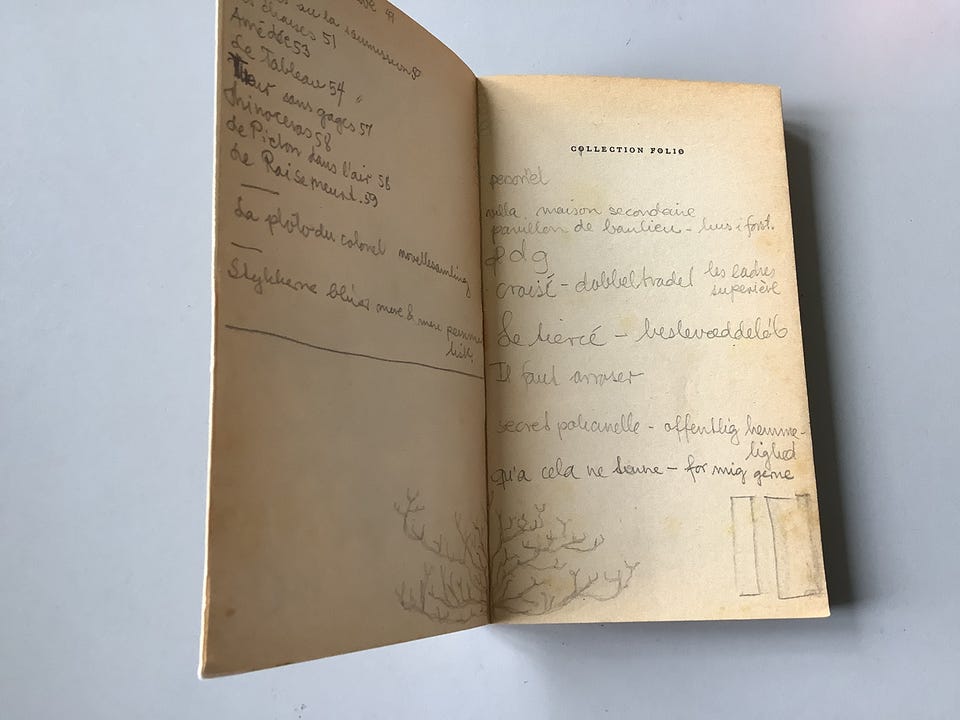 ou la soumission 50
chaises 51
Amédée 53
Le Tableau 54 "
Tueur sans gages 57
Rhinoceros 58
de Piéton dans l'air 58
de Raisemeurt. 59
La photo du colonel novellesamling
Stykkerne bliver mere & mere
COLLECTION FOLIO
personel
villa, maison secondaire
pavillon de banlieu - hus i forst.
pdg
croisé - dobbeltradet les cadres
superière
Le tiercé - væddeløb
Il faut arroser
secret policinelle - offentlig hemme-
lighed
qu'a cela ne tienne - for mig gerne